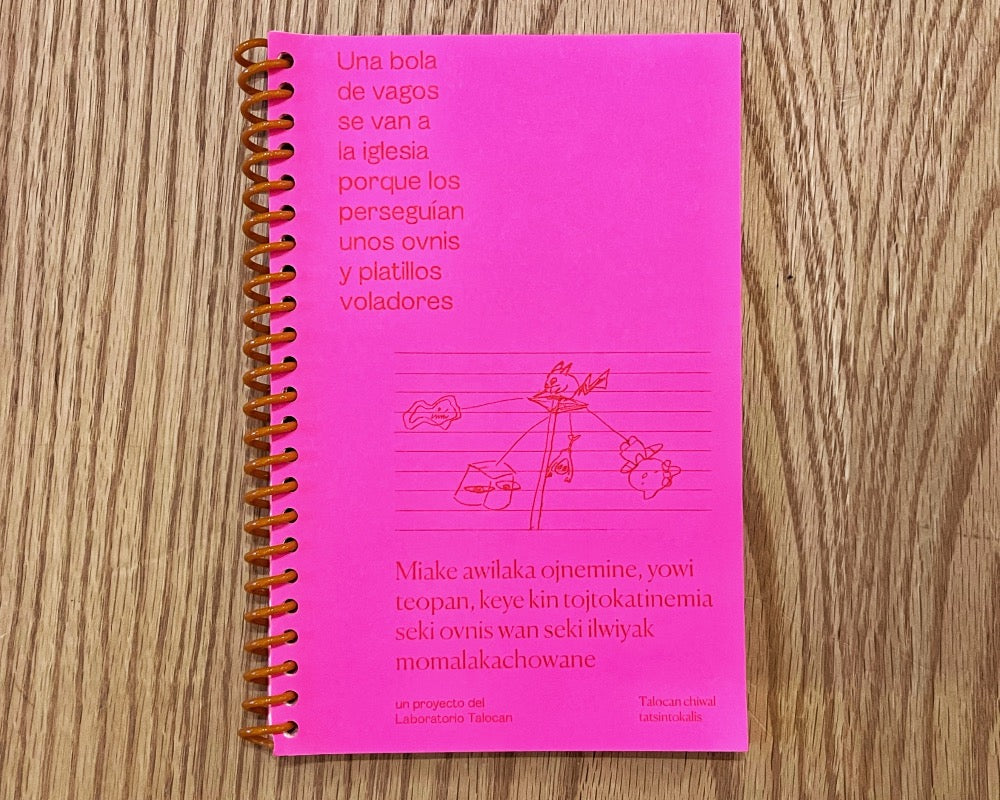 Una bola
de vagos
se van a
la iglesia
porque los
perseguían
unos ovnis
y platillos
voladores
Miake awilaka ojnemine, yowi
teopan, keye kin tojtokatinemia
seki ovnis wan seki ilwiyak
momalakachowane
un proyecto del
Laboratorio Talocan
Talocan chiwal
tatsintokalis